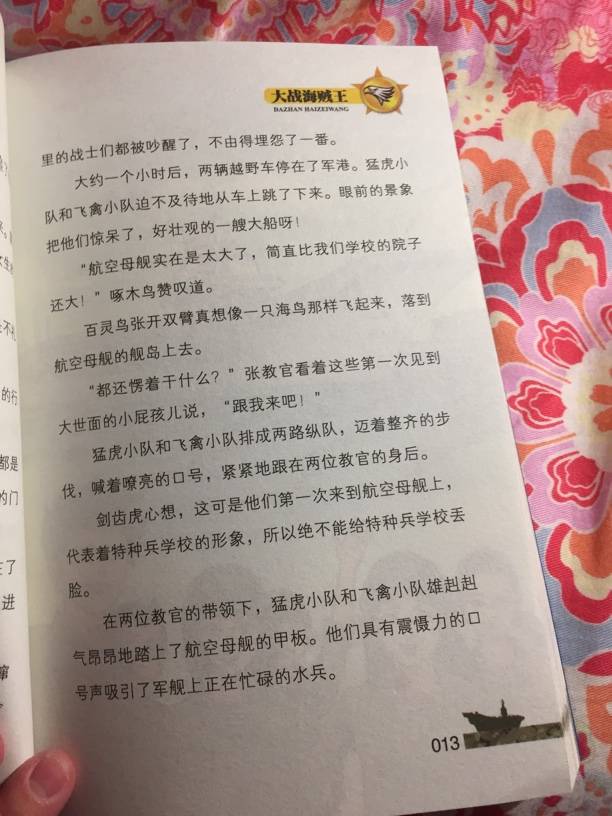 大战海贼王
DAZHAN HAIZEIWANG
里的战士们都被吵醒了，不由得埋怨了一番。
大约一个小时后，两辆越野车停在了军港。猛虎小
队和飞禽小队迫不及待地从车上跳了下来。眼前的景象
把他们惊呆了，好壮观的一艘大船呀！
“航空母舰实在是太大了，简直比我们学校的院子
还大！”啄木鸟赞叹道。
百灵鸟张开双臂真想像一只海鸟那样飞起来，落到
航空母舰的舰岛上去。
“都还愣着干什么？”张教官看着这些第一次见到
大世面的小屁孩儿说，“跟我来吧！”
猛虎小队和飞禽小队排成两路纵队，迈着整齐的步
伐，喊着嘹亮的口号，紧紧地跟在两位教官的身后。
剑齿虎心想，这可是他们第一次来到航空母舰上，
代表着特种兵学校的形象，所以绝不能给特种兵学校丢
脸。
在两位教官的带领下，猛虎小队和飞禽小队雄赳赳
气昂昂地踏上了航空母舰的甲板。他们具有震慑力的口
号声吸引了军舰上正在忙碌的水兵。
013
的行
都是
的门
了
进